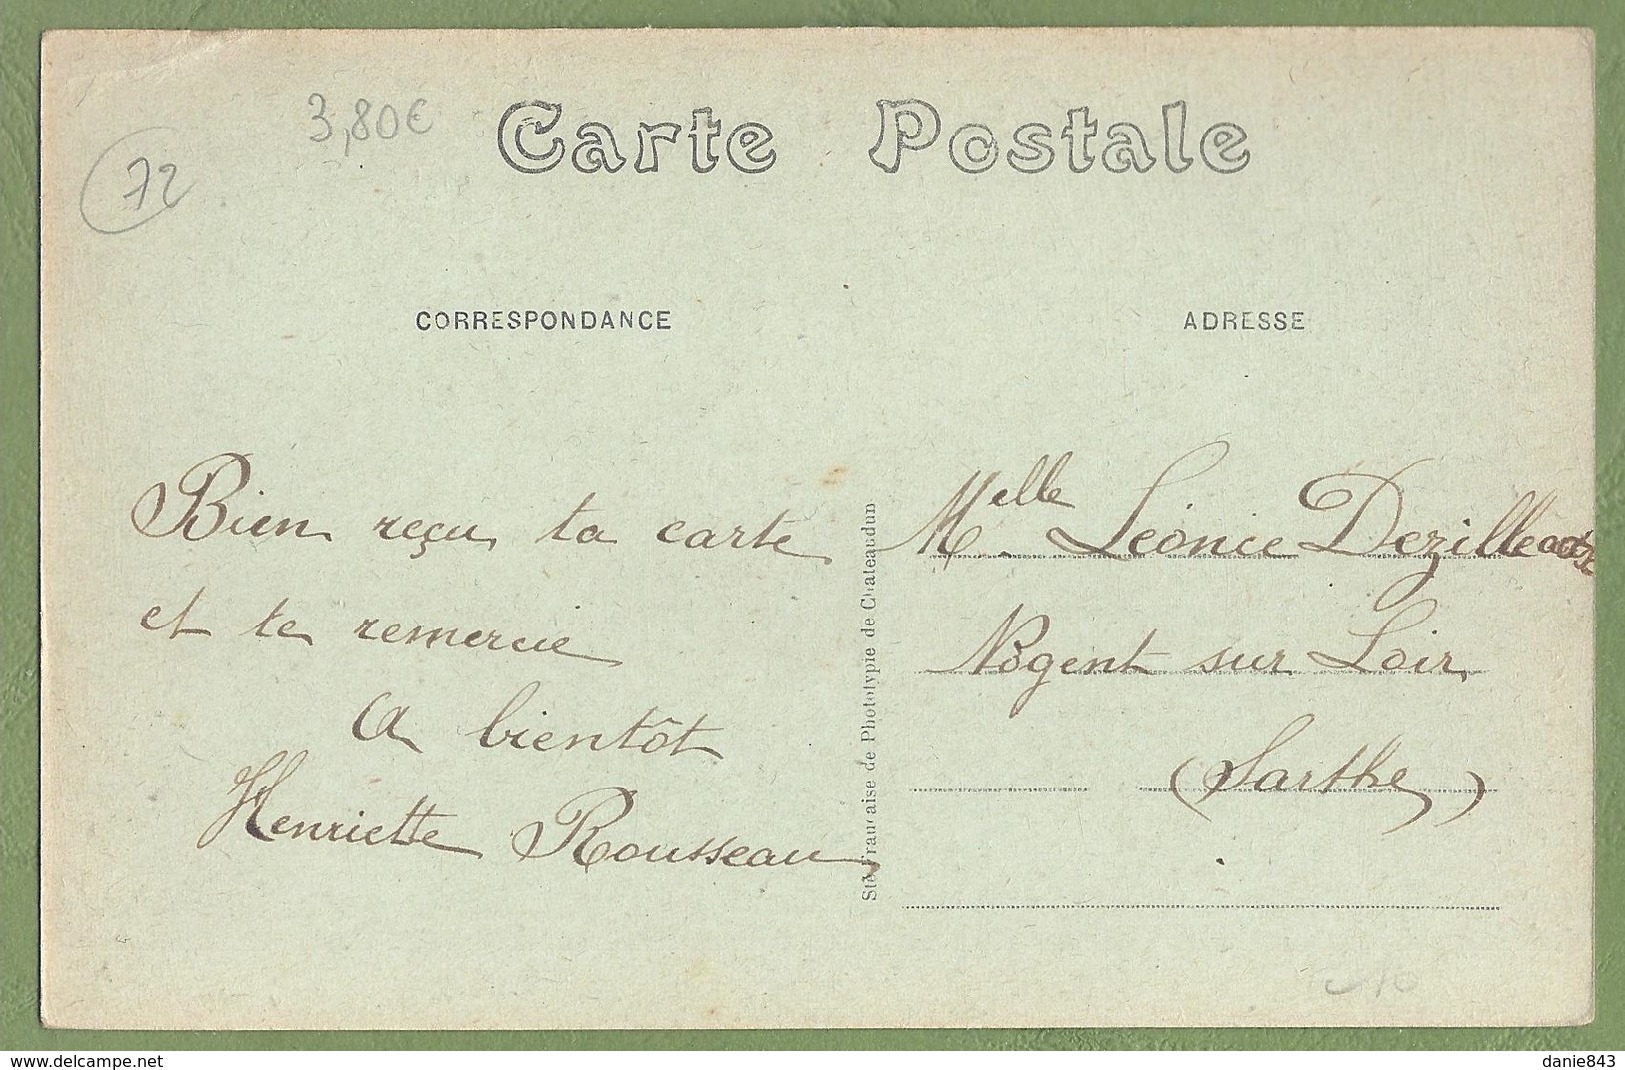 3,80€
72
Carte Postale
CORRESPONDANCE
ADRESSE
Bien reçu ta carte
et te remercie
A bientôt
Henriette Rousseau
Sté Française de Phototypie de Chateaudun
Melle. Léonice
Nogent sur Loir
(Sarthe)
www.delcampe.net
danie843